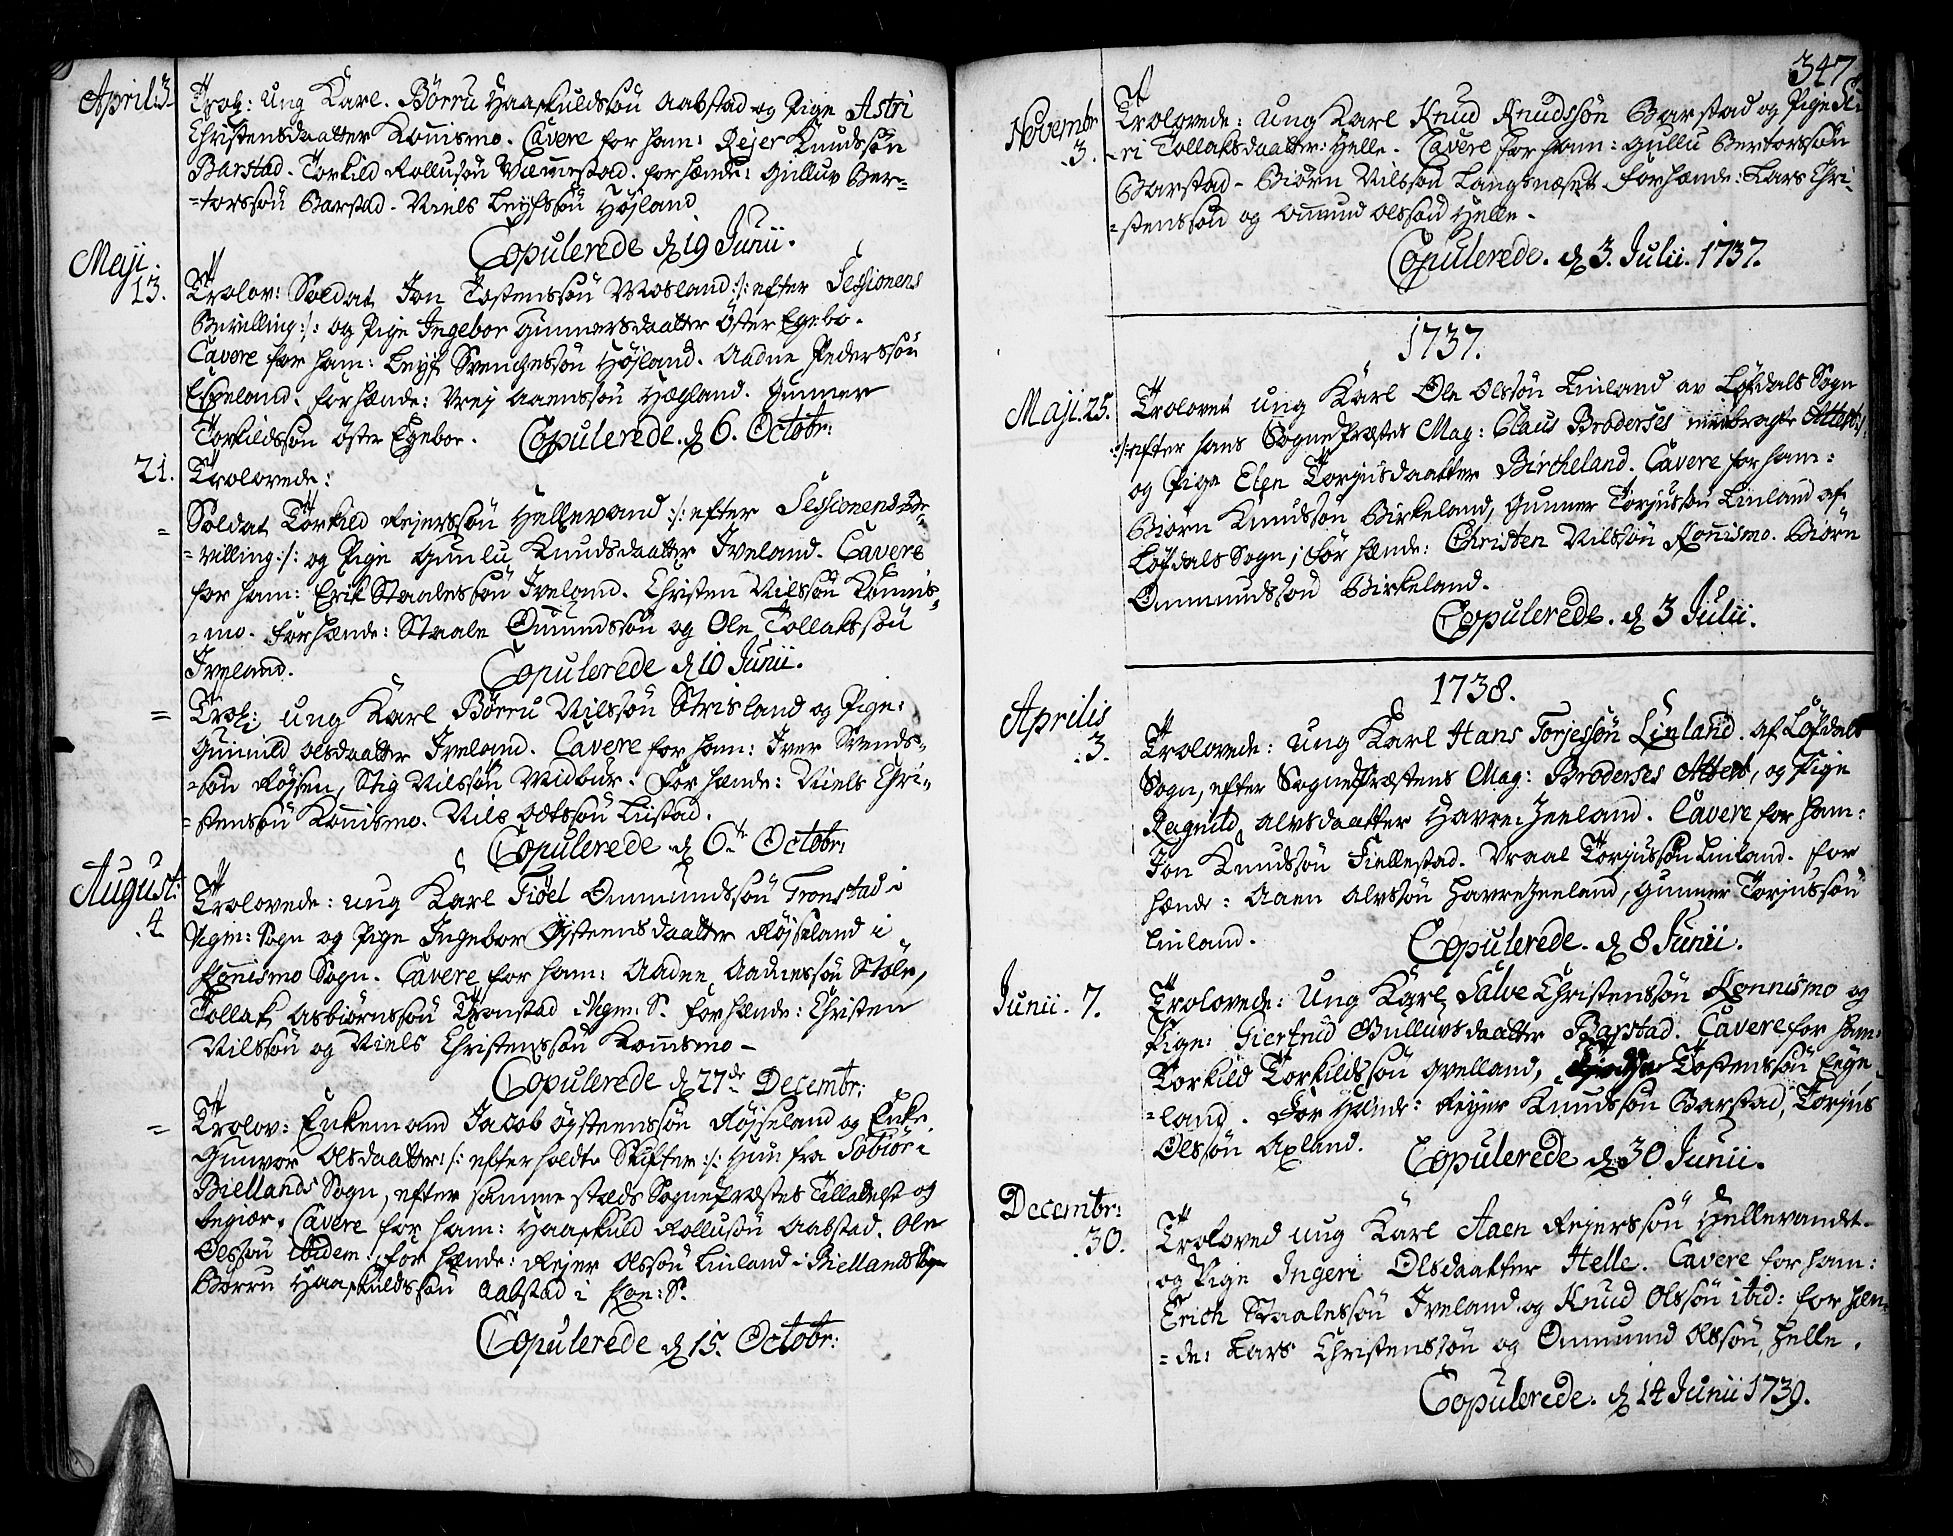 April: 3.
Trol: Ung Karl. Börru Haaskuldssön Aabstad og Pige Astri
Christensdaatter Konismo. Cavere for ham: Rejer Knudssön
Barstad. Torkild Rollusön Vamestad. for hænde: Gulluv Ber-
-torssön Barstad. Niels Leyfssön Höjland
Copulerede d 19 Junii.
Maji. 13.
Trolov: Soldat Jon Tostenssön Mosland :/: efter Sessionens
Bevilling :/: og Pige Ingebor Gunnarsdaatter Öster Egebo.
Cavere for ham: Leyf Svenchessön Höjland. Aadne Pederssön
Eskeland. for hænde: Vrej Aanenssön Hægland. Gunner
Torkildssön Öster Egeboe. Copulerede d 6. Octobr:
21.
Trolovede:
=
Soldat Torkild Rejerssön Hellevand :/: efter Sessionens Be-
-villing :/: og Pige Gunlu Knudsdaatter Iveland. Cavere
for ham: Erik Staalessön Iveland. Christen Nilssön Konnis-
-mo. for hænde: Staale Omundssön og Ole Tollakssön
Iveland. Copulerede d 10 Junii.
=
Trol: ung Karl Börru Nilssön Strisland og Pige:
Gunnild Olsdaatter Iveland. Cavere for ham: Iver Svends-
-sön Röjsen, Stig Nilssön Midbur. for hænde: Niels Chri-
-stenssön Konnismo. Nils Odtssön Liistad.
Copulerede d 6te Octobr:
August: 4.
Trolovede: ung Karl Fiöel Ommundssön Tronstad i
Ægm: Sogn og Pige Ingebor Öysteensdaatter Röjseland i
Konnismo Sogn. Cavere for ham: Aadne Aadnessön Stole,
Tollak Asbiörnssön Tronstad Ægm: S. for hænde: Christen
Nilssön og Niels Christenssön Konnismo -
Copulerede d 27de Decembr:
=
Trolov: Enkemand Jacob Öysteenssön Röjseland og Enke
Gunvor Olsdaatter :/: efter holdte Skifter :/: hun fra Tobiör i
Biellands Sogn, efter samme stæds SognePræstes Tilladelse og
begiær. Cavere for ham: Haaskuld Rollusön Aabstad. Ole
Olssön ibidem. for hænde: Rejer Olssön Linland i Biellands Sogn
Börru Haaskuldssön Aabstad i Kon: S.
Copulerede d 15. Octobr:
347
Novembr 3.
Trolovede: Ung Karl Knud Knudssön Barstad og Pige Si-
-ri Tollaksdaatter: Helle. Cavere for ham: Gullu Bertorssön
Barstad - Biörn Nilssön Langenæset for hænde: Lars Chri-
-stenssön og Omund Olssön Helle.
Copulerede. d 3. Julii. 1737.
1737.
Maji. 25.
Trolovet ung Karl Ole Olssön Linland av Löfdals Sogn
:/: efter hans SognePræstes Mag: Claus Broderses Attest :/:
og Pige Elen Torjusdaatter Bircheland. Cavere for ham:
Biörn Knudssön Birkeland, Gunner Torjussön Linland af
Löfdals Sogn; for hænde: Christen Nilssön Konnismo. Biörn
Ommundssön Birkeland.
Copulerede. d 3 Julii.
1738.
Aprilis 3.
Trolovede: ung Karl Hans Torjessön Linland. af Löfdals
Sogn, efter SognePræstens Mag: Broderses Attest, og Pige
Ragnild Alvsdaatter Havre Jeeland. Cavere for ham:
Jon Knudssön Fiellestad. Vraal Torjussön Linland. for
hænde: Aaen Alvssön HavreJeeland, Gunner Torjussön
Linland. Copulerede. d 8 Junii.
Junii. 7.
Trolovede: Ung Karl Salve Christenssön Konnismo og
Pige: Giertrud Gulluvsdaatter Barstad. Cavere for ham:
Torkild Torkildssön Qvelland, Tostenssön Eege-
-land. For Hænde: Rejer Knudssön Barstad, Torjus
Olssön Axland. Copulerede d 30 Junii.
Decembr: 30.
Troloved ung Karl Aaen Rejerssön Hellevandt.
og Pige Ingeri Olsdaatter Helle. Cavere for ham:
Erich Staalessön Iveland. og Knud Olssön ibid: for hæn-
-de: Lars Christenssön og Ommund Olssön Helle.
Copulerede. d 14 Junii 1739.